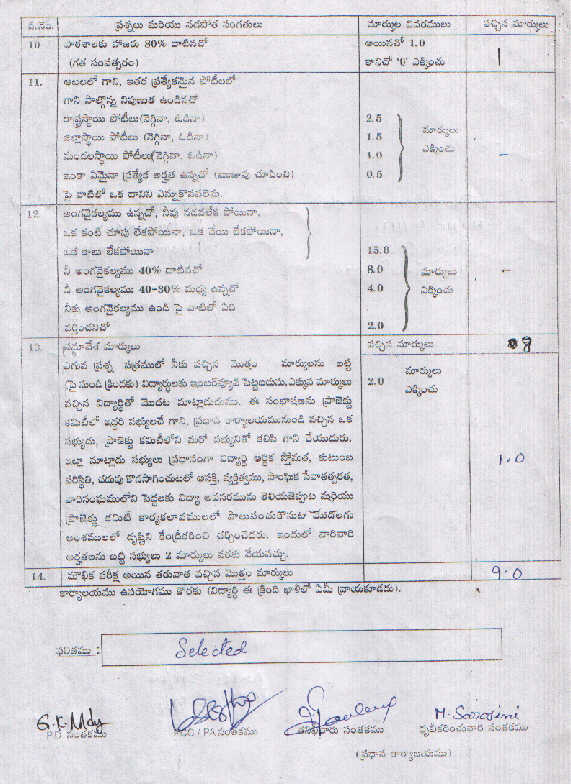 వ.నెం. ప్రశ్నలు మరియు సరిపోత సంగతులు మార్కుల వివరములు వచ్చిన మార్కులు
10 పాఠశాలకు హాజరు 80% దాటినచో అయినచో 1.0 1
(గత సంవత్సరం) కానిచో '0' ఎక్కించు
11. ఆటలలో గాని, ఇతర ప్రత్యేకమైన పోటీలలో
గాని పాల్గొన్న నిపుణుత ఉండినచో
రాష్ట్రస్థాయి పోటీలు(నెగ్గినా, ఓడినా) 2.5 మార్కులు
జిల్లాస్థాయి పోటీలు (నెగ్గినా, ఓడినా) 1.5 ఎక్కించు
మండలస్థాయి పోటీలు(నెగ్గినా, ఓడినా) 1.0 –
ఇంకా ఏమైనా ప్రత్యేక అర్హత ఉన్నచో (ఋజువు చూపించి) 0.5
పై వాటిలో ఒక దానిని ఎన్నుకొనవలెను.
12. అంగవైకల్యము ఉన్నచో, నీవు నడవలేక పోయినా,
ఒక కంటి చూపు లేకపోయినా, ఒక చేయి లేకపోయినా,
ఒక కాలు లేకపోయినా 15.0
నీ అంగవైకల్యము 40% దాటినచో 8.0 మార్కులు –
నీ అంగవైకల్యము 40-30% మధ్య ఉన్నచో 4.0 ఎక్కించు
నీకు అంగవైకల్యము ఉండి పై వాటిలో ఏది
వర్తించనిచో 2.0
13. సమావేశ మార్కులు వచ్చిన మార్కులు 08
ఎగువ ప్రశ్న పత్రములో నీకు వచ్చిన మొత్తం మార్కులను బట్టి మార్కులు
(పై నుండి క్రిందకు) విద్యార్థులకు ఇంటర్వ్యూవ్ పెట్టబడును.ఎక్కువ మార్కులు 2.0 ఎక్కించు
వచ్చిన విద్యార్థితో మొదట మాట్లాడుదురు. ఈ సంభాషణను ప్రాజెక్టు
కమిటీలో ఇద్దరి సభ్యులచే గాని, ప్రధాన కార్యాలయమునుండి వచ్చిన ఒక
సభ్యుడు, ప్రాజెక్టు కమిటీలోని మరో సభ్యునితో కలిపి గాని చేయుదురు.
ఇట్లా మాట్లాడు సభ్యులు ప్రధానంగా విద్యార్థి ఆర్థిక స్తోమత, కుటుంబ 1.0
పరిస్థితి, చదువు కొనసాగించుటలో ఆసక్తి, వ్యక్తిత్వము, సాంఘిక సేవాతత్పరత,
వాడసంఘములోని పెద్దలకు విద్యా అవసరమును తెలియజెప్పుట మరియు
ప్రాజెక్టు కమిటీ కార్యకలాపములలో పాలుపంచుకొనుట మొదలగు
అంశములలో దృష్టిని కేంద్రీకరించి చర్చించెదరు. ఇందులో వారివారి
అర్హతలను బట్టి సభ్యులు 2 మార్కులు వరకు వేయవచ్చు.
14. మౌఖిక పరీక్ష అయిన తరువాత వచ్చిన మొత్తం మార్కులు 9.0
కార్యాలయము ఉపయోగము కొరకు (విద్యార్థి ఈ క్రింది ఖాళీలో ఏమీ వ్రాయకూడదు).
ఫలితము : Selected
G.K.Mdy M. Sarojini
P.D సంతకము / PA సంతకము తనిఖీదారు సంతకము ధృవీకరించువారి సంతకము
(ప్రధాన కార్యాలయము)